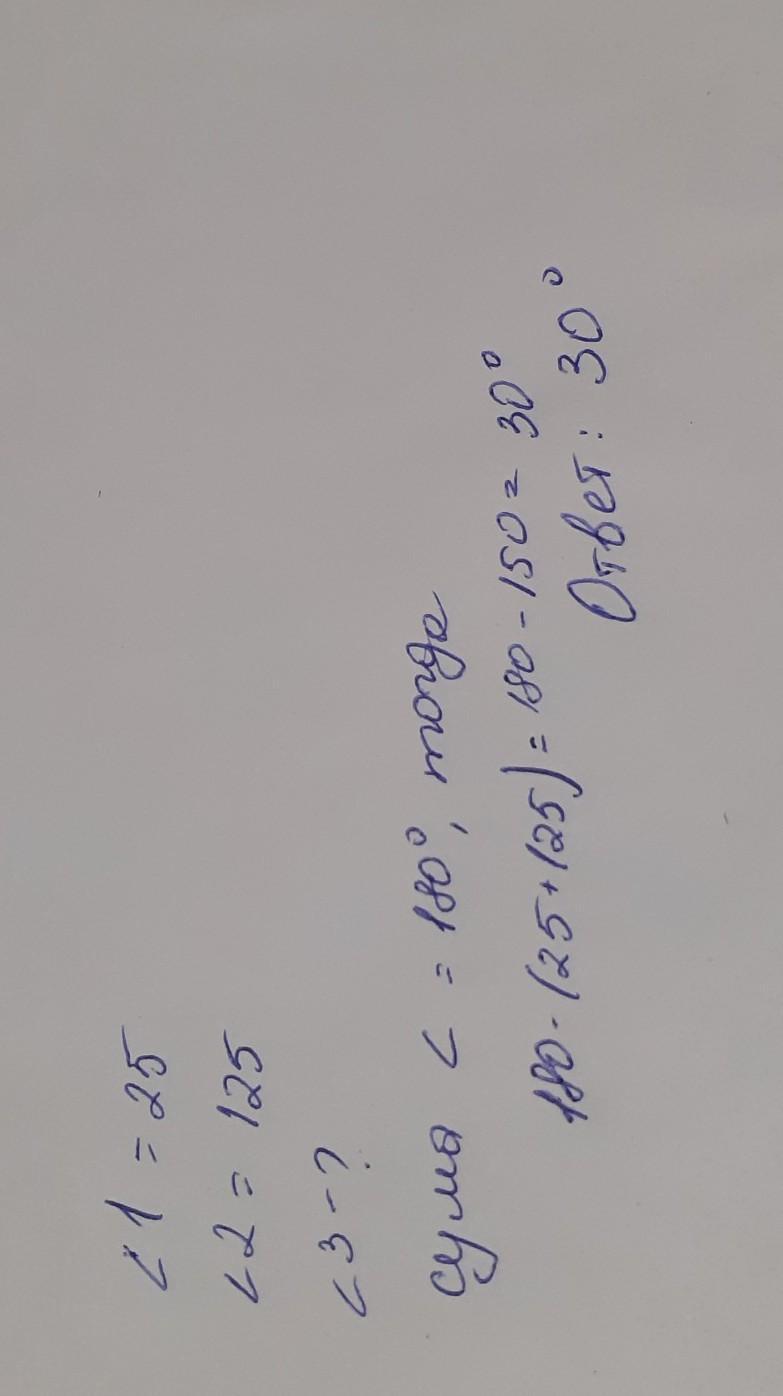 <1 = 25
<2 = 125
<3 - ?
сума < = 180°, тогда
180 - (25 + 125) = 180 - 150 = 30°
Ответ: 30°